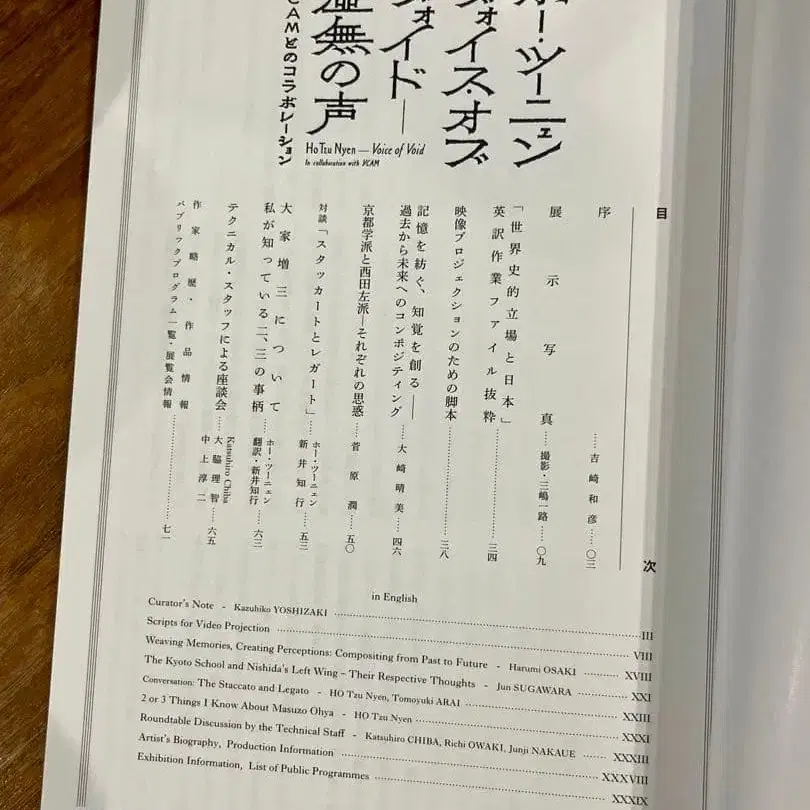 ホー・ツーニェン
ヴォイス・オブ
ヴォイド―
虚無の声
CAMとのコラボレーション
Ho Tzu Nyen — Voice of Void
In collaboration with YCAM
目次
序……吉崎和彦……〇三
展示写真……撮影・三嶋一路……〇九
「世界史的立場と日本」
英訳作業ファイル抜粋……三四
映像プロジェクションのための脚本……三八
記憶を紡ぐ、知覚を創る――
過去から未来へのコンポジティング……大﨑晴美……四六
京都学派と西田左派―それぞれの思惑……菅原潤……五〇
対談「スタッカートとレガート」……ホー・ツーニェン
新井知行……五三
大家増三について
私が知っている二、三の事柄……ホー・ツーニェン
翻訳・新井知行……六三
テクニカル・スタッフによる座談会……Katsuhiro Chiba
大脇理智……六五
中上淳二
作家略歴・作品情報
パブリックプログラム一覧・展覧会情報……七一
in English
Curator's Note - Kazuhiko YOSHIZAKI ……III
Scripts for Video Projection ……VIII
Weaving Memories, Creating Perceptions: Compositing from Past to Future - Harumi OSAKI ……XVIII
The Kyoto School and Nishida's Left Wing – Their Respective Thoughts - Jun SUGAWARA ……XXI
Conversation: The Staccato and Legato - HO Tzu Nyen, Tomoyuki ARAI ……XXIII
2 or 3 Things I Know About Masuzo Ohya - HO Tzu Nyen ……XXXI
Roundtable Discussion by the Technical Staff - Katsuhiro CHIBA, Richi OWAKI, Junji NAKAUE ……XXXIII
Artist's Biography, Production Information ……XXXVIII
Exhibition Information, List of Public Programmes ……XXXIX